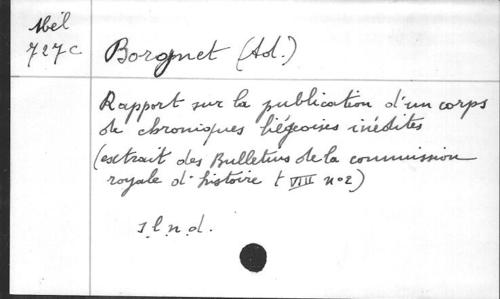 Mél
727C
Borgnet (Ad.)
Rapport sur la publication d'un corps
de chroniques liégeoises inédites
(extrait des Bulletins de la commission
royale d'histoire t VIII n° 2)
s.l.n.d.